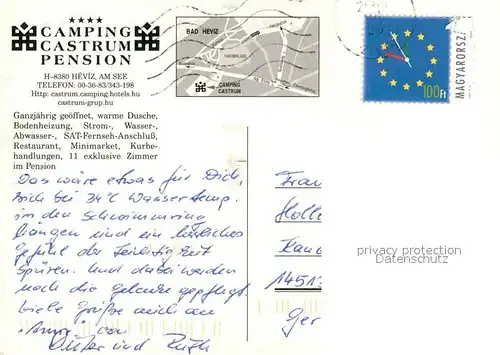 CAMPING
CASTRUM
PENSION
H-8380 HÉVÍZ, AM SEE
TELEFON: 00-36-83/343-198
Http: castrum.camping.hotels.hu
castrum-grup.hu
Ganzjährig geöffnet, warme Dusche,
Bodenheizung, Strom-, Wasser-,
Abwasser-, SAT-Fernseh-Anschluß,
Restaurant, Minimarket, Kurbe-
handlungen, 11 exklusive Zimmer
im Pension
BAD HÉVÍZ
CAMPING
CASTRUM
MAGYARORSZ
100Ft
Das wäre etwas für Dich,
sich bei 34°C Wassertemp.
in den Schwimmring
hängen und ein
Gefühl der
Spüren. Und dabei werden
noch die Gelenke gepflegt.
Viele Grüße auch an
von
und Ruth
Frau
Holl
1451
Ger
privacy protection
Datenschutz